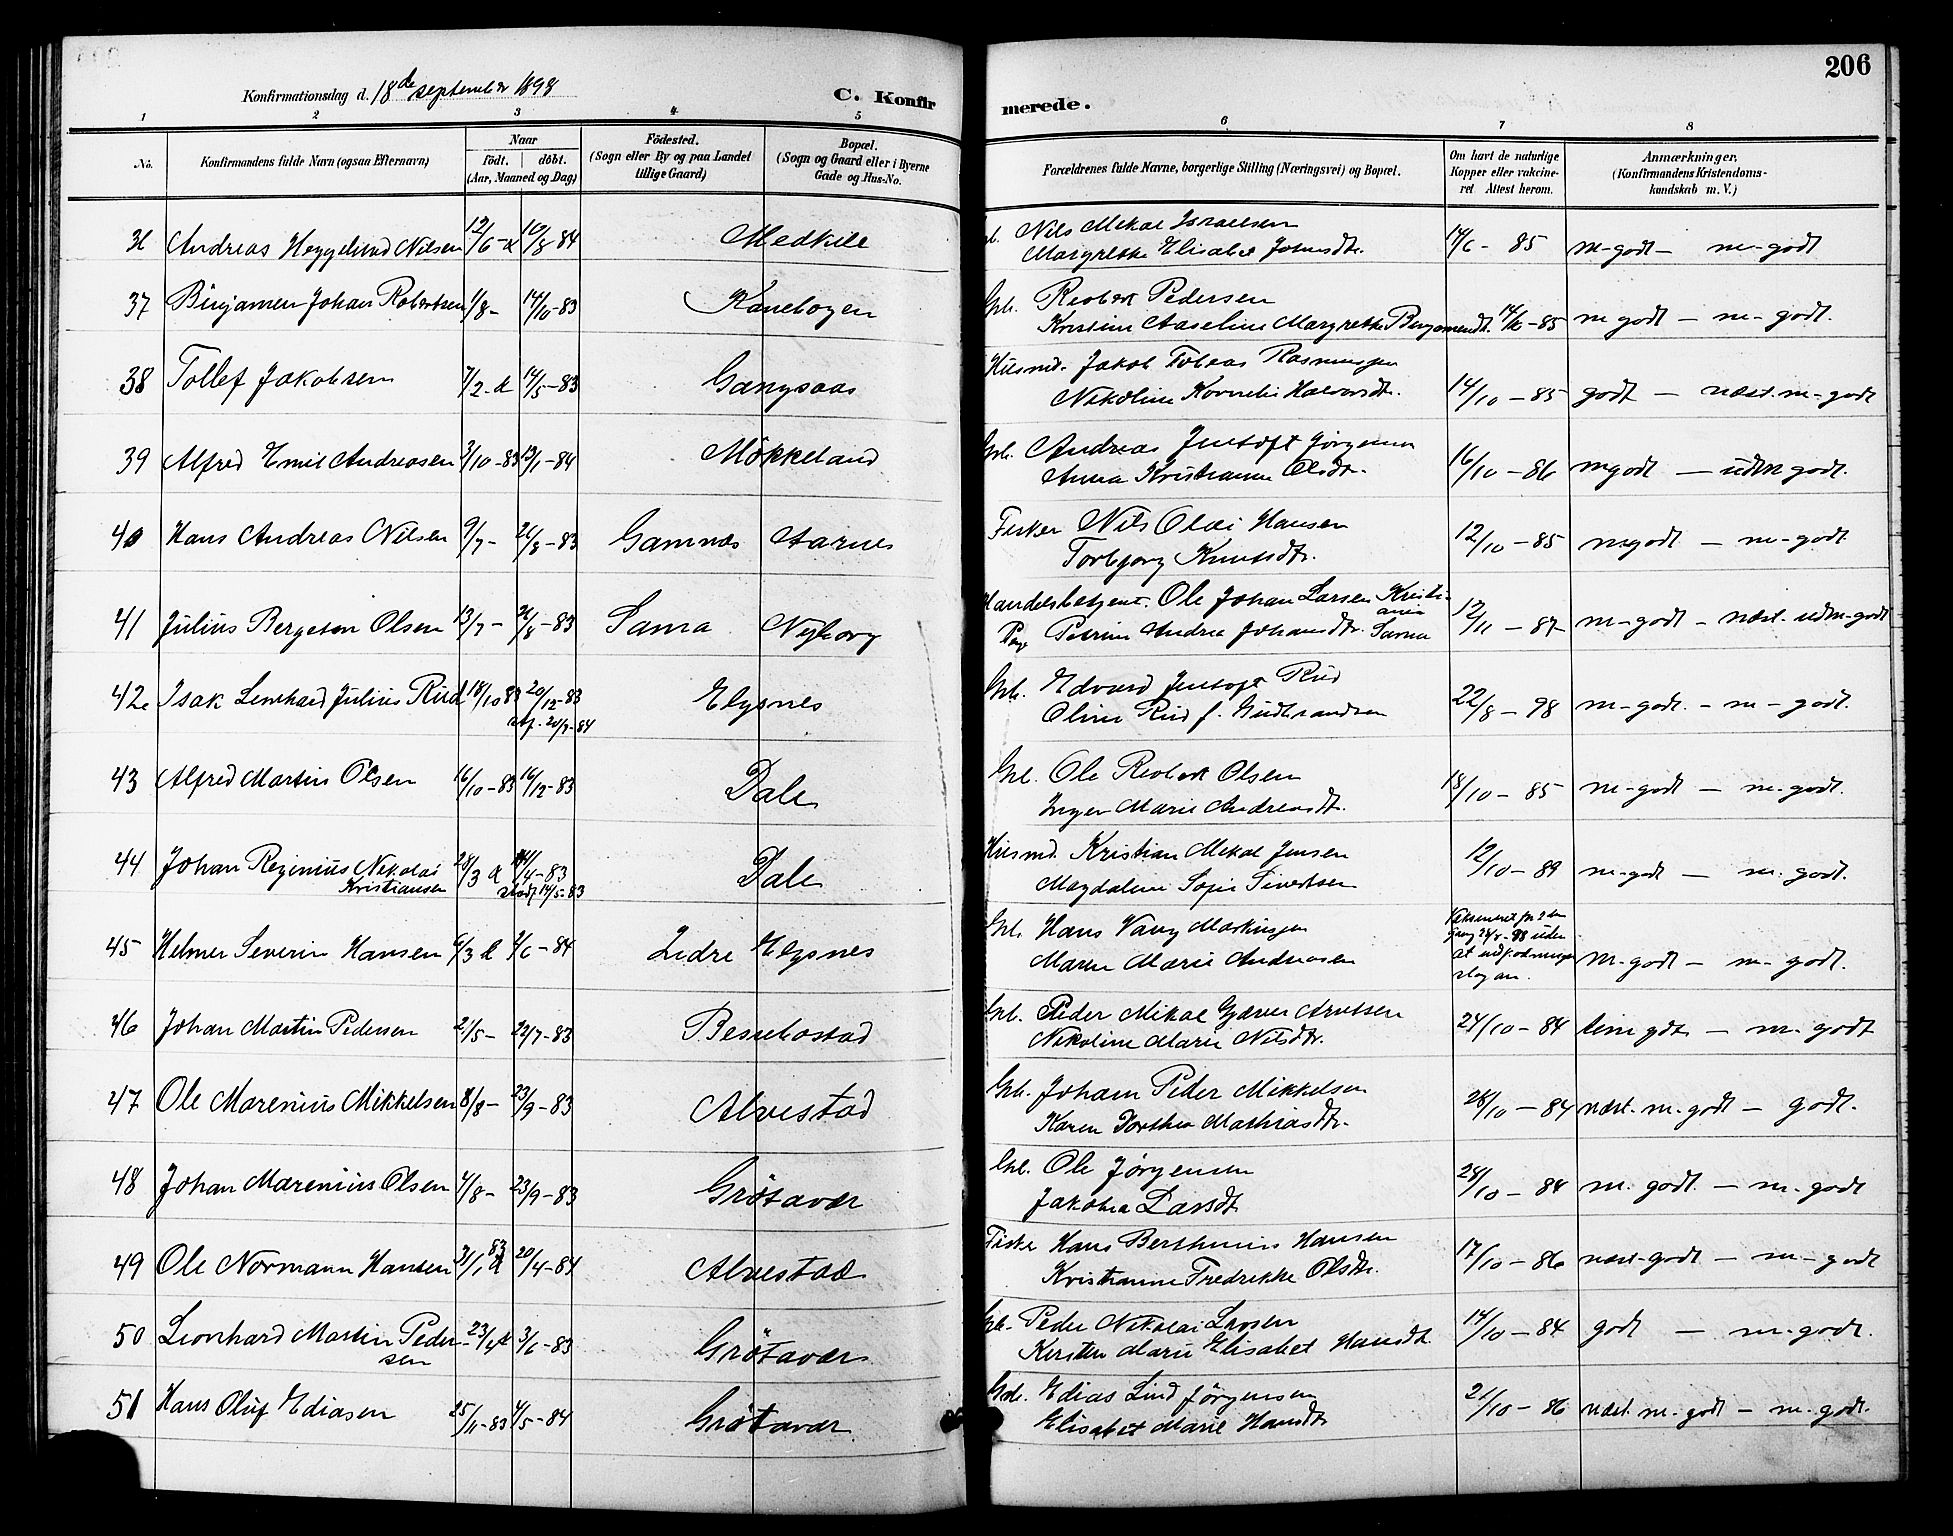 206
Konfirmationsdag d. 18de september 1898
C. Konfirmerede.
1 2 3 4 5 6 7 8
No.
Konfirmandens fulde Navn (ogsaa Efternavn)
Naar
födt. | döbt.
(Aar, Maaned og Dag)
Födested.
(Sogn eller By og paa Landet
tillige Gaard)
Bopæl.
(Sogn og Gaard eller i Byerne
Gade og Hus-No.
Forældrenes fulde Navne, borgerlige Stilling (Næringsvei) og Bopæl.
Om havt de naturlige
Kopper eller vakcine-
ret Attest herom.
Anmærkninger.
(Konfirmandens Kristendoms-
kundskab m. V.)
Andreas Heggelund Nilsen 12/6 10/8 84 Medkile Nils Mikal Israelsen 85 m-godt - m-godt
Margrethe Elisabet
37 Binjamen Johan Robertsen 1/8- 14/10-83 Kanebogen Gbr. Robert Pedersen
Kristine Aaseline Margrethe 14/10-85 m godt - m-godt.
38 Tollef Jakobsen 7/2 14/5-83 Gangsaas Husmd. Jakob Tobias Rasmussen
Nikoline Kornelie Halvorsdtr. 14/10-85 godt - næst. m-godt
39 Alfred Emil Andreasen 3/10-83 13/1-84 Møkkeland Gbr. Andreas Jentoft Jørgensen
Anna Kristianna Olsdtr. 16/10-86 mgodt - udm godt.
40 Hans Andreas Nilsen 9/7- 26/8-83 Gamnæs Aarnes Fisker Nils Olai Hansen
Torbjørg Knutsdtr. 12/10-85 m-godt - m-godt
41 Julius Bergeton Olsen 13/7- 26/8-83 Sama Nyborg Handelsbetjent. Ole Johan Larsen Kristi-
ania
Pige Petrine Andrea Johansdtr. Sama 12/11-87 m-godt - næst. udm-godt
42 Isak Lenhard Julius Rud 18/10 83 20/12-83 Elgsnes Gbr. Edvard Jentoft Rud
Oline Rud f. Gudbrandsen 22/8-98 m-godt. - m-godt.
43 Alfred Martin Olsen 16/10-83 16/12-83 Dale Gbr. Ole Robert Olsen
Inger Marie Andreasdtr. 18/10-85 m-godt - m-godt.
44 Johan Reginius Nikolai
Kristiansen 28/3 14/4-83
stadf. 14/5-83 Dale Husmd. Kristian Mikal Jensen
Magdalena Sofie Sivertsen 12/10-89 m-godt - m. godt.
45 Helmer Severin Hansen 6/3 1/6-84 Indre Elgsnes Gbr. Hans Vang Martinsen
Maren Marie Andreasen
gang 24/8-98 uden
at
slog an. m-godt - m-godt.
46 Johan Martin Pedersen 21/5- 22/7-83 Bessebostad Gbr. Peder Mikal Gjæver Arntsen
Nikoline Marie Nilsdtr. 24/10-84 tem. gdt - m-godt
47 Ole Marenius Mikkelsen 8/8- 23/9-83 Alvestad Gbr. Johan Peder Mikkelsen
Karen Dorthea Mathiasdtr. 28/10-84 næst. m-godt - godt.
48 Johan Marenius Olsen 4/8- 23/9-83 Grötavær Gbr. Ole Jørgensen
Jakobia Larsdt. 28/10-84 m. godt. - m-godt
49 Ole Normann Hansen 31/1 83 20/4-84 Alvestad Fisker Hans Berthinius Hansen
Kristianne Fredrikke Olsdtr. 17/10-86 næst-godt - m-godt
50 Leonhard Martin Peder-
sen 23/4 3/6-83 Grötavær Gbr. Peder Nikolai Larsen
Kirsten Marie Elisabet Hansdt. 14/10-84 godt - m-godt.
51 Hans Oluf Ediasen 25/11-83 4/5-84 Grötavær Gbr. Edias Lind Jørgensen
Elisabet Marie Hansdtr 21/10-86 næst. m-godt - m-godt.